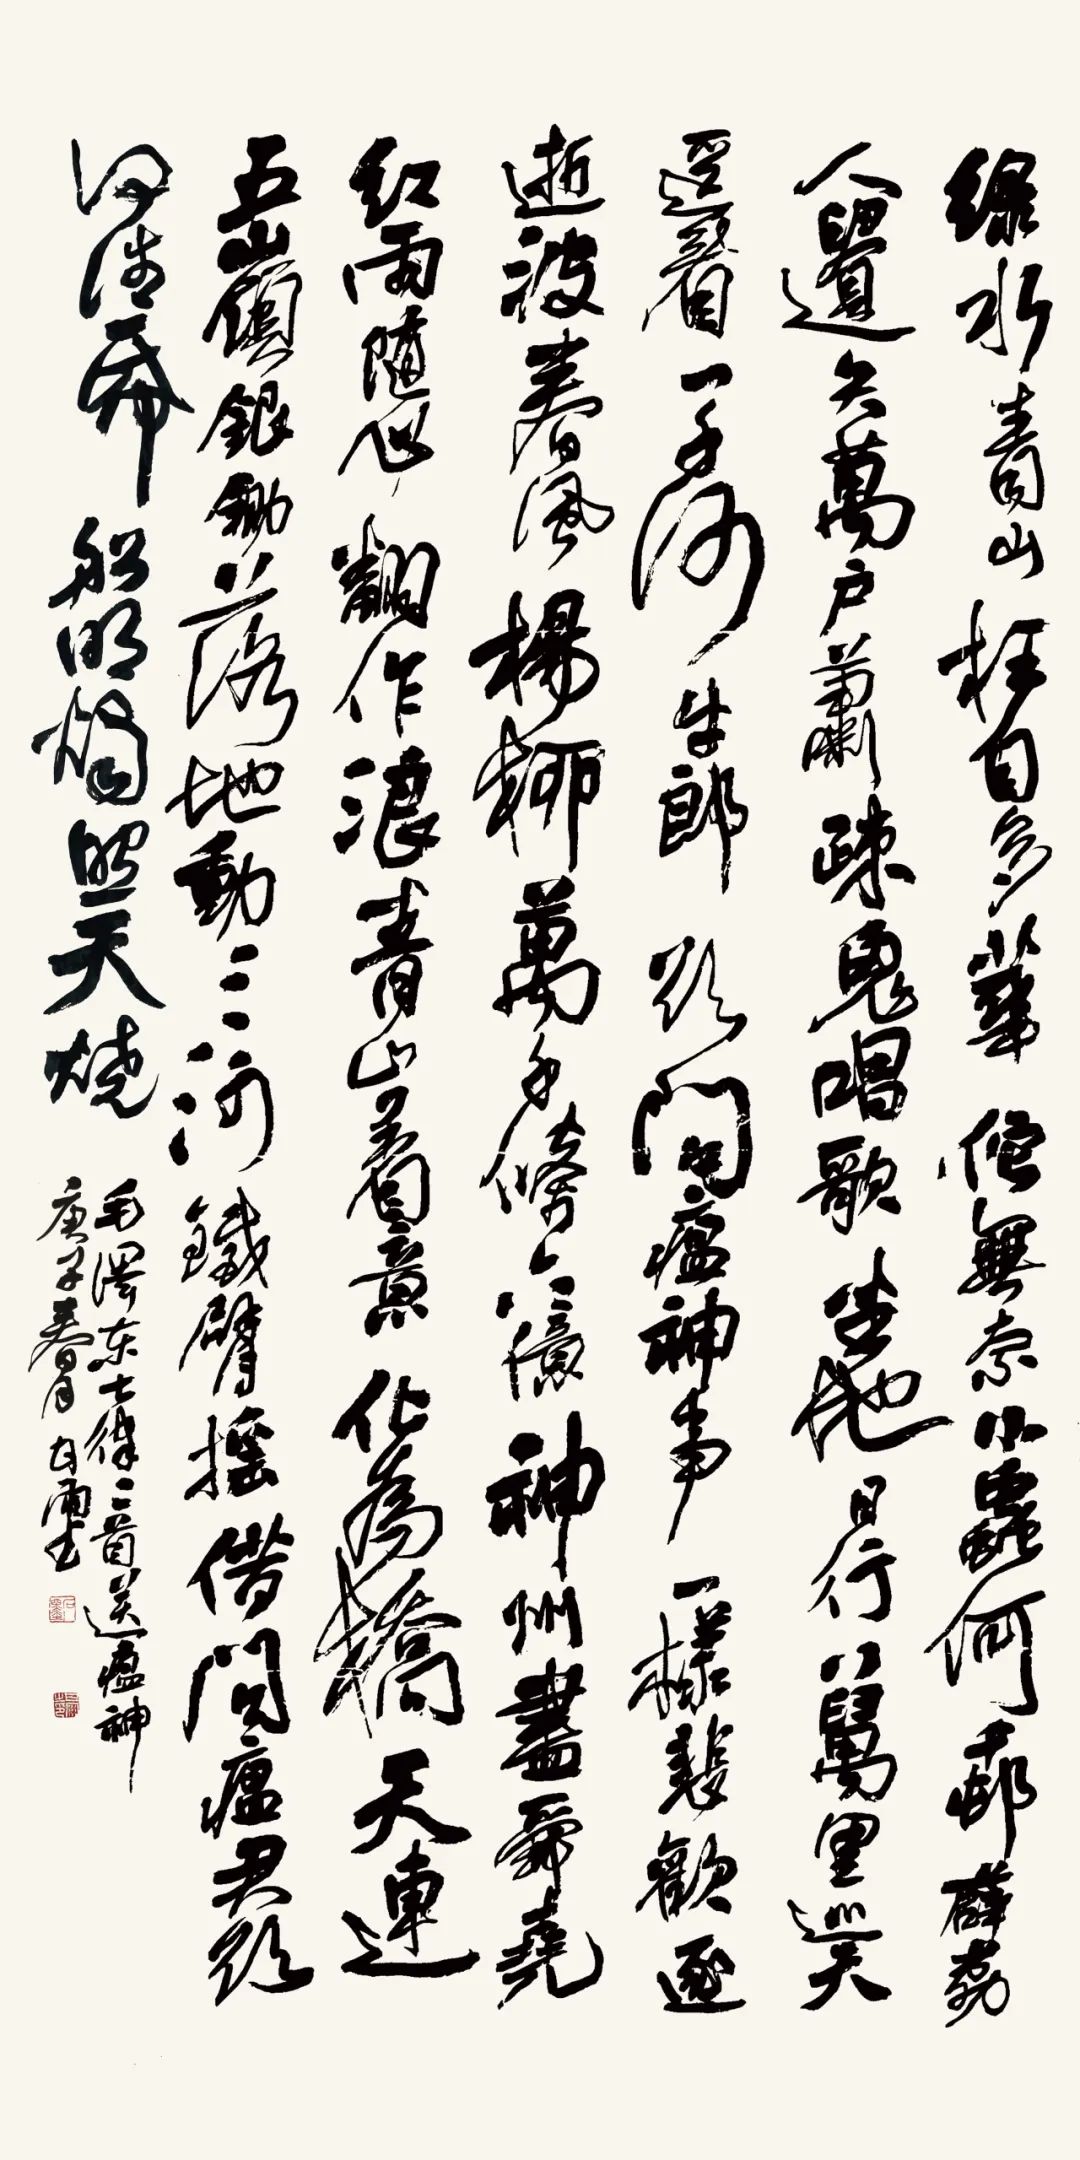 綠水青山枉自多華佗無奈小蟲何千邨薜荔
人遺矢萬户蕭疎鬼唱歌坐地日行八萬里巡天
遥看一千河牛郎欲問瘟神事一樣悲歡逐
逝波春風楊柳萬千條六億神州盡舜堯
紅雨隨心翻作浪青山着意化為橋天連
五嶺銀鋤落地動三河鐵臂摇借問瘟君欲
何往帋船明燭照天燒
毛澤东七律二首送瘟神
庚子春月